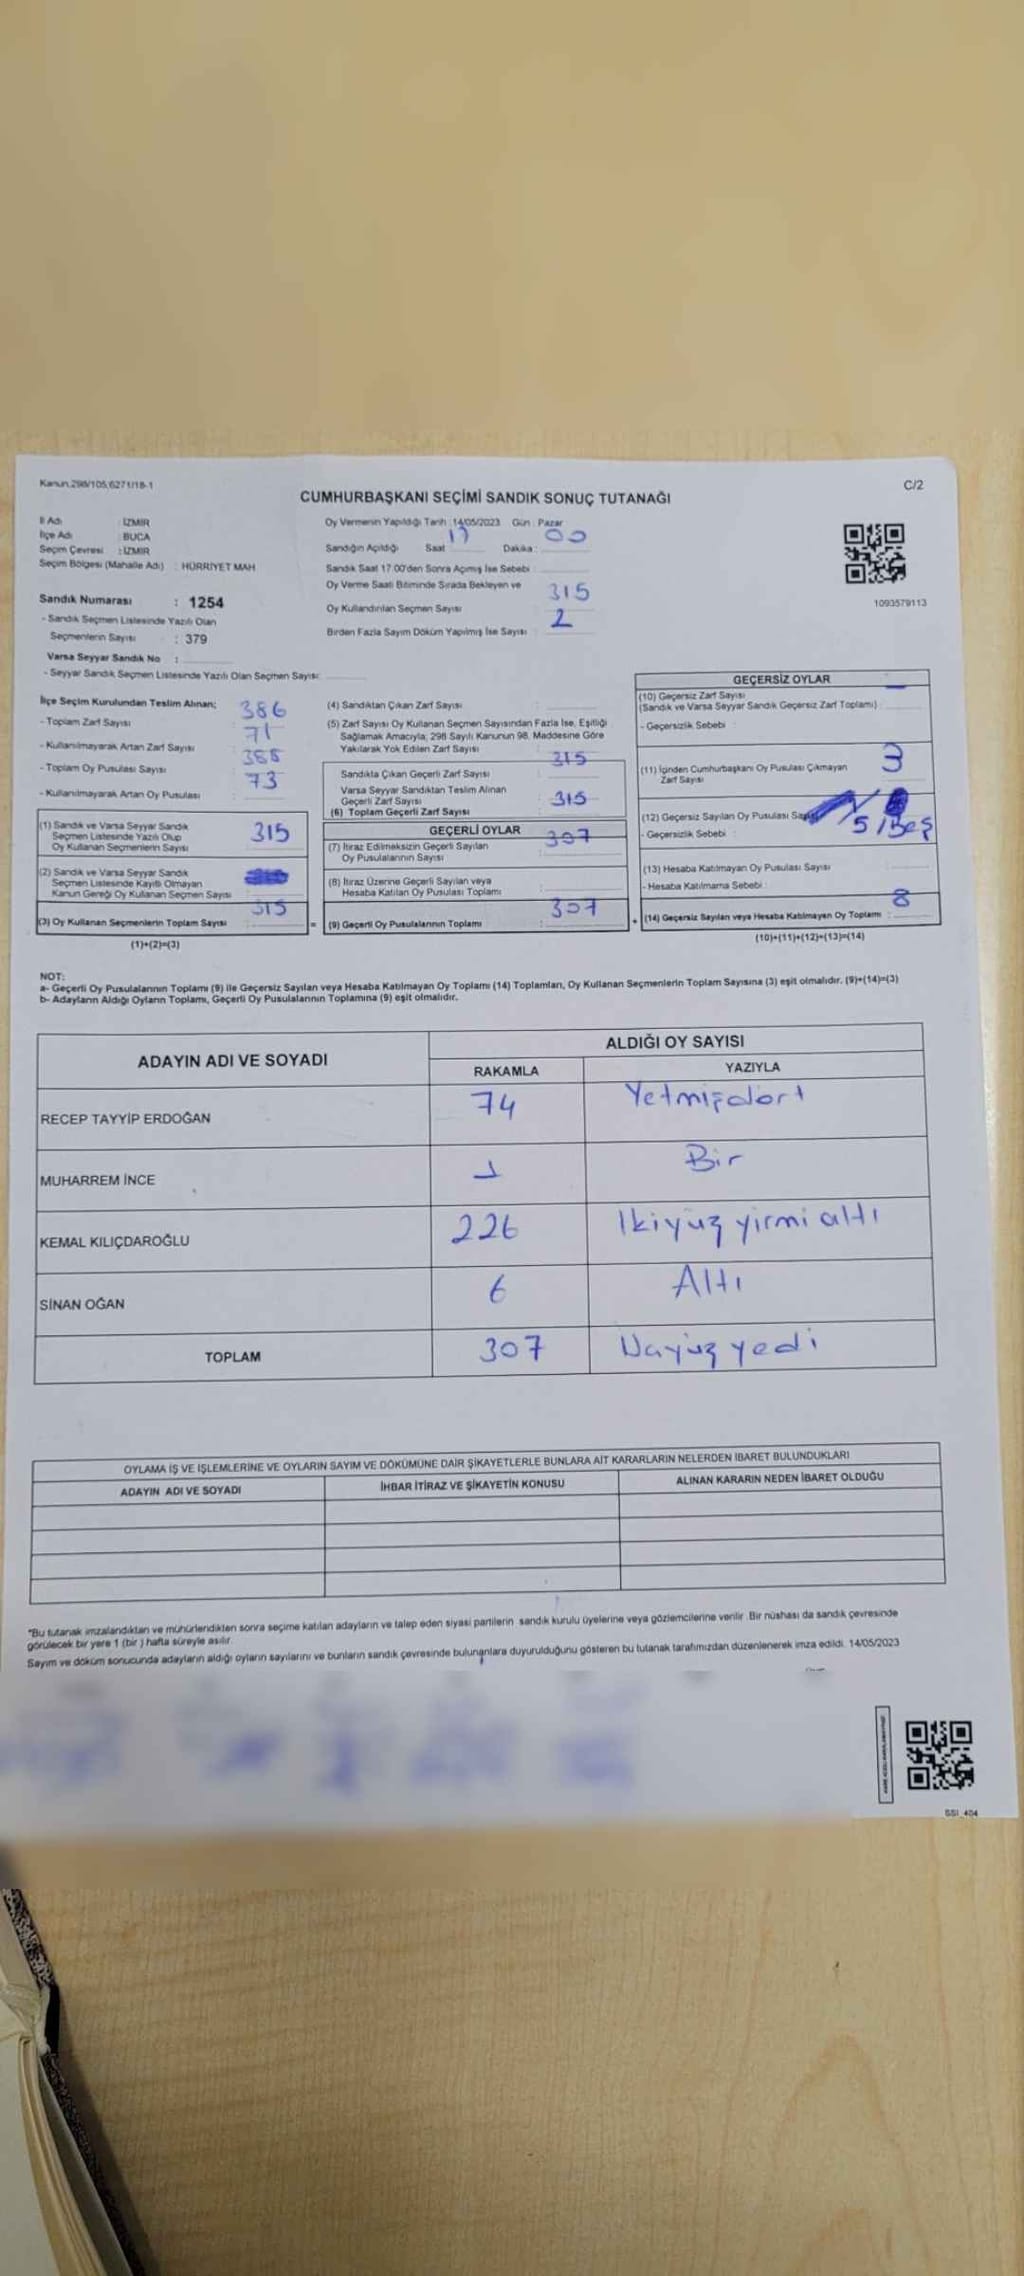 Kanun.298/105,6271/18-1
C/2
CUMHURBAŞKANI SEÇİMİ SANDIK SONUÇ TUTANAĞI
İl Adı : İZMİR
İlçe Adı : BUCA
Seçim Çevresi : İZMİR
Seçim Bölgesi (Mahalle Adı) : HÜRRİYET MAH
Sandık Numarası : 1254
- Sandık Seçmen Listesinde Yazılı Olan
Seçmenlerin Sayısı : 379
Varsa Seyyar Sandık No :
- Seyyar Sandık Seçmen Listesinde Yazılı Olan Seçmen Sayısı:
Oy Vermenin Yapıldığı Tarih :14/05/2023 Gün : Pazar
Sandığın Açıldığı Saat 17 Dakika : 00
Sandık Saat 17.00'den Sonra Açımış İse Sebebi :
Oy Verme Saati Bitiminde Sırada Bekleyen ve
Oy Kullandırılan Seçmen Sayısı : 315
Birden Fazla Sayım Döküm Yapılmış İse Sayısı : 2
1093579113
İlçe Seçim Kurulundan Teslim Alınan;
- Toplam Zarf Sayısı : 386
- Kullanılmayarak Artan Zarf Sayısı : 71
- Toplam Oy Pusulası Sayısı : 388
- Kullanılmayarak Artan Oy Pusulası : 73
(1) Sandık ve Varsa Seyyar Sandık
Seçmen Listesinde Yazılı Olup
Oy Kullanan Seçmenlerin Sayısı
315
(2) Sandık ve Varsa Seyyar Sandık
Seçmen Listesinde Kayıtlı Olmayan
Kanun Gereği Oy Kullanan Seçmen Sayısı
(3) Oy Kullanan Seçmenlerin Toplam Sayısı : 315
(1)+(2)=(3)
(4) Sandıktan Çıkan Zarf Sayısı :
(5) Zarf Sayısı Oy Kullanan Seçmen Sayısından Fazla İse, Eşitliği
Sağlamak Amacıyla; 298 Sayılı Kanunun 98. Maddesine Göre
Yakılarak Yok Edilen Zarf Sayısı :
Sandıkta Çıkan Geçerli Zarf Sayısı : 315
Varsa Seyyar Sandıktan Teslim Alınan
Geçerli Zarf Sayısı
(6) Toplam Geçerli Zarf Sayısı : 315
GEÇERLİ OYLAR
(7) İtiraz Edilmeksizin Geçerli Sayılan
Oy Pusulalarının Sayısı
307
(8) İtiraz Üzerine Geçerli Sayılan veya
Hesaba Katılan Oy Pusulası Toplamı
= (9) Geçerli Oy Pusulalarının Toplamı : 307
GEÇERSİZ OYLAR
(10) Geçersiz Zarf Sayısı
(Sandık ve Varsa Seyyar Sandık Geçersiz Zarf Toplamı) : —
- Geçersizlik Sebebi :
(11) İçinden Cumhurbaşkanı Oy Pusulası Çıkmayan
Zarf Sayısı
3
(12) Geçersiz Sayılan Oy Pusulası 5 / Beş
- Geçersizlik Sebebi :
(13) Hesaba Katılmayan Oy Pusulası Sayısı
- Hesaba Katılmama Sebebi :
+ (14) Geçersiz Sayılan veya Hesaba Katılmayan Oy Toplamı : 8
(10)+(11)+(12)+(13)=(14)
NOT:
a- Geçerli Oy Pusulalarının Toplamı (9) ile Geçersiz Sayılan veya Hesaba Katılmayan Oy Toplamı (14) Toplamları, Oy Kullanan Seçmenlerin Toplam Sayısına (3) eşit olmalıdır. (9)+(14)=(3)
b- Adayların Aldığı Oyların Toplamı, Geçerli Oy Pusulalarının Toplamına (9) eşit olmalıdır.
ADAYIN ADI VE SOYADI
ALDIĞI OY SAYISI
RAKAMLA YAZIYLA
RECEP TAYYİP ERDOĞAN 74 Yetmişdört
MUHARREM İNCE 1 Bir
KEMAL KILIÇDAROĞLU 226 Ikiyüz yirmi altı
SİNAN OĞAN 6 Altı
TOPLAM 307 Üçyüz yedi
OYLAMA İŞ VE İŞLEMLERİNE VE OYLARIN SAYIM VE DÖKÜMÜNE DAİR ŞİKAYETLERLE BUNLARA AİT KARARLARIN NELERDEN İBARET BULUNDUKLARI
ADAYIN ADI VE SOYADI İHBAR İTİRAZ VE ŞİKAYETİN KONUSU ALINAN KARARIN NEDEN İBARET OLDUĞU
"Bu tutanak imzalandıktan ve mühürlendikten sonra seçime katılan adayların ve talep eden siyasi partilerin sandık kurulu üyelerine veya gözlemcilerine verilir .Bir nüshası da sandık çevresinde
görülecek bir yere 1 (bir ) hafta süreyle asılır.
Sayım ve döküm sonucunda adayların aldığı oyların sayılarını ve bunların sandık çevresinde bulunanlara duyurulduğunu gösteren bu tutanak tarafımızdan düzenlenerek imza edildi. 14/05/2023
SSI_404